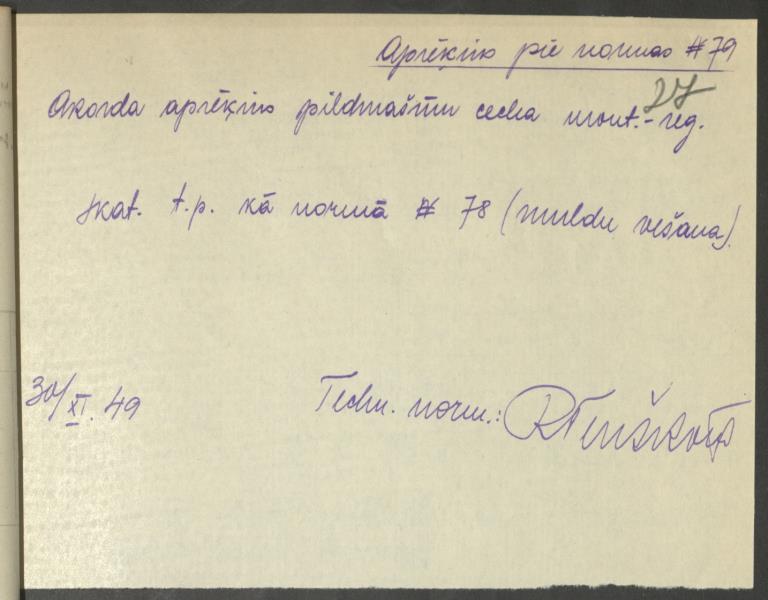 Aprēķins pie normas # 79
27
Akorda aprēķins pildmašīnu cecha mont.-reg.
skat. t.p. kā normā # 78 (muldu vešana).
30/XI. 49
Techn. norm.: